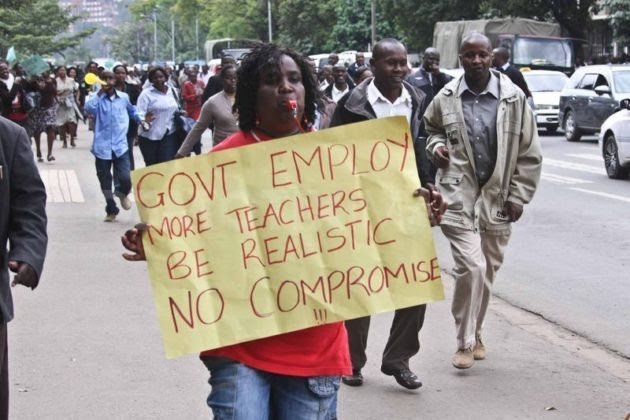 GOVT EMPLOY
MORE TEACHERS
BE REALISTIC
NO COMPROMISE
!!!